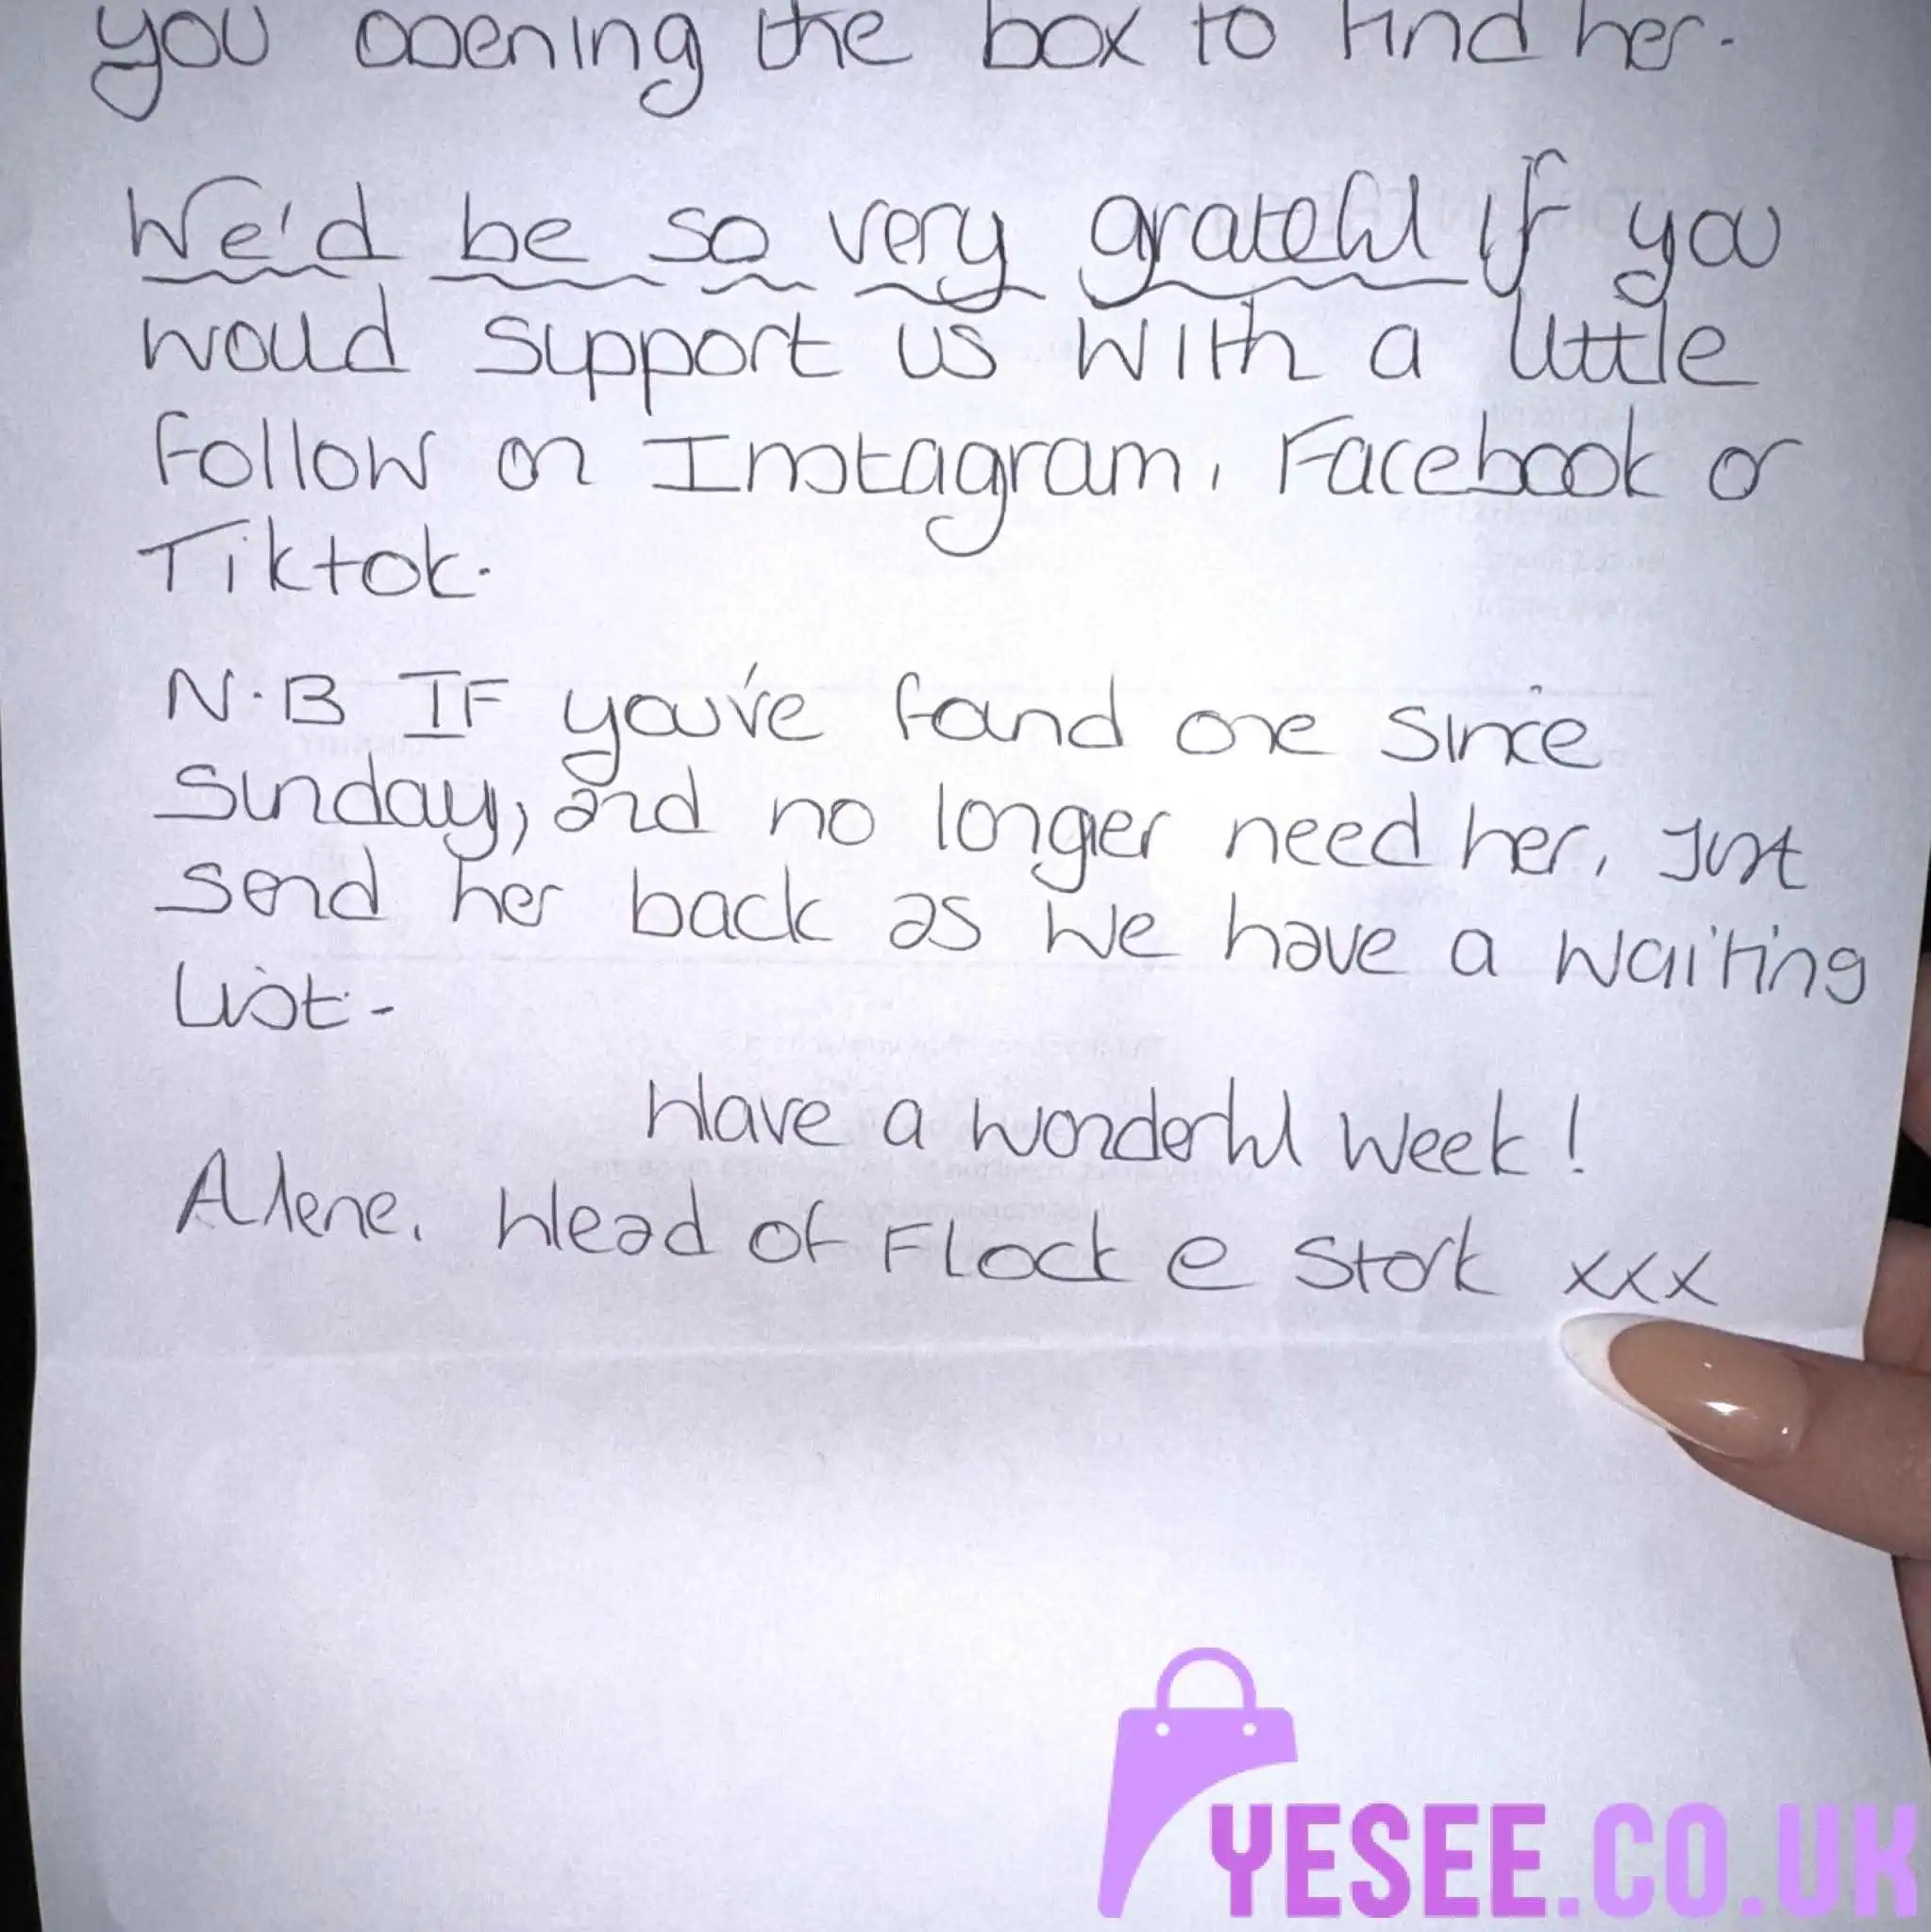 you opening the box to find her.
We'd be so very grateful if you
would support us with a little
follow on Instagram, Facebook or
Tiktok.
N.B IF you've found one since
Sunday, and no longer need her, just
send her back as we have a waiting
list.
Have a wonderful week!
Head of Flock @ Stork xxx
YESEE.CO.UK